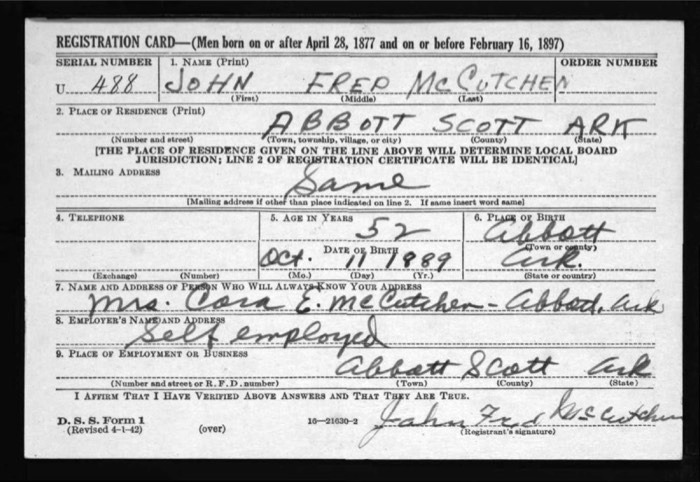 REGISTRATION CARD—(Men born on or after April 28, 1877 and on or before February 16, 1897)
SERIAL NUMBER 1. NAME (Print) ORDER NUMBER
U. 488 JOHN FRED McCUTCHEN
(First) (Middle) (Last)
2. PLACE OF RESIDENCE (Print)
ABBOTT SCOTT ARK
(Number and street) (Town, township, village, or city) (County) (State)
[THE PLACE OF RESIDENCE GIVEN ON THE LINE ABOVE WILL DETERMINE LOCAL BOARD
JURISDICTION; LINE 2 OF REGISTRATION CERTIFICATE WILL BE IDENTICAL]
3. MAILING ADDRESS
Same
[Mailing address if other than place indicated on line 2. If same insert word same]
4. TELEPHONE 5. AGE IN YEARS 6. PLACE OF BIRTH
52 Abbott
DATE OF BIRTH (Town or county)
Oct. 11 1889 Ark.
(Exchange) (Number) (Mo.) (Day) (Yr.) (State or country)
7. NAME AND ADDRESS OF PERSON WHO WILL ALWAYS KNOW YOUR ADDRESS
Mrs. Cora E. McCutchen - Abbott, Ark
8. EMPLOYER'S NAME AND ADDRESS
Self employed
9. PLACE OF EMPLOYMENT OR BUSINESS
Abbott Scott Ark
(Number and street or R. F. D. number) (Town) (County) (State)
I AFFIRM THAT I HAVE VERIFIED ABOVE ANSWERS AND THAT THEY ARE TRUE.
D. S. S. Form 1
(Revised 4-1-42) (over) 16—21630-2 John Fred McCutchen
(Registrant's signature)